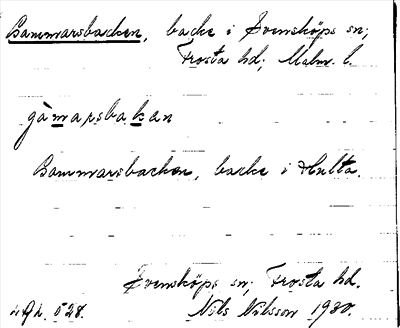 Gammarsbacken, backe i Svensköps sn;
Frosta hd; Malm. l.
gàmarsbakan
Gammarsbacken, backe i Hulta.
Svensköps sn; Frosta hd.
Nils Nilsson 1930.